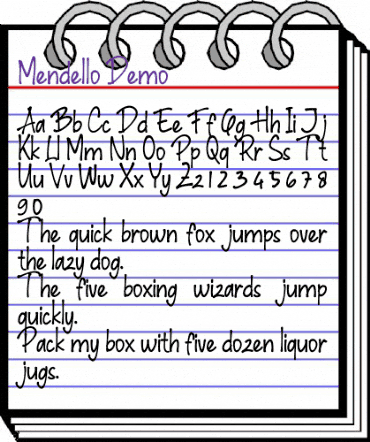 Mendello Demo
Aa Bb Cc Dd Ee Ff Gg Hh Ii Jj
Kk Ll Mm Nn Oo Pp Qq Rr Ss Tt
Uu Vv Ww Xx Yy Zz 1 2 3 4 5 6 7 8
9 0
The quick brown fox jumps over
the lazy dog.
The five boxing wizards jump
quickly.
Pack my box with five dozen liquor
jugs.